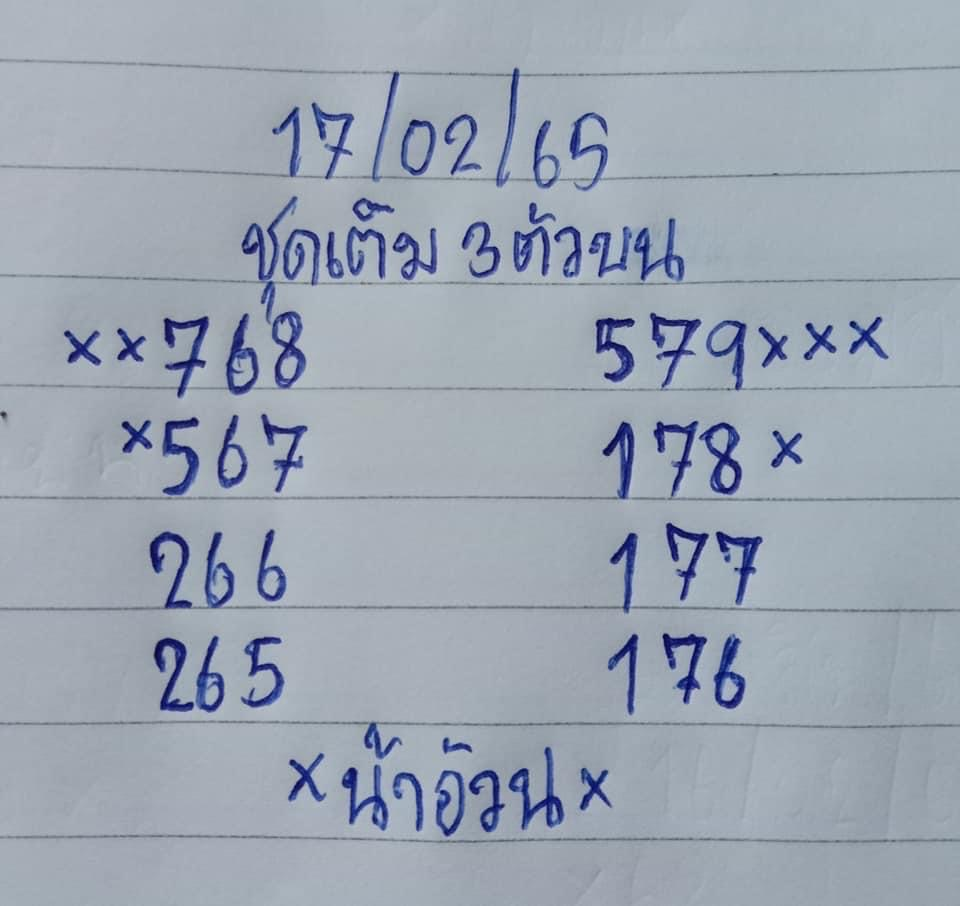 17/02/65
ชุดเต็ม 3 ตัวบน
××768 579×××
×567 178×
266 177
265 176
×น้ำอ้วน×